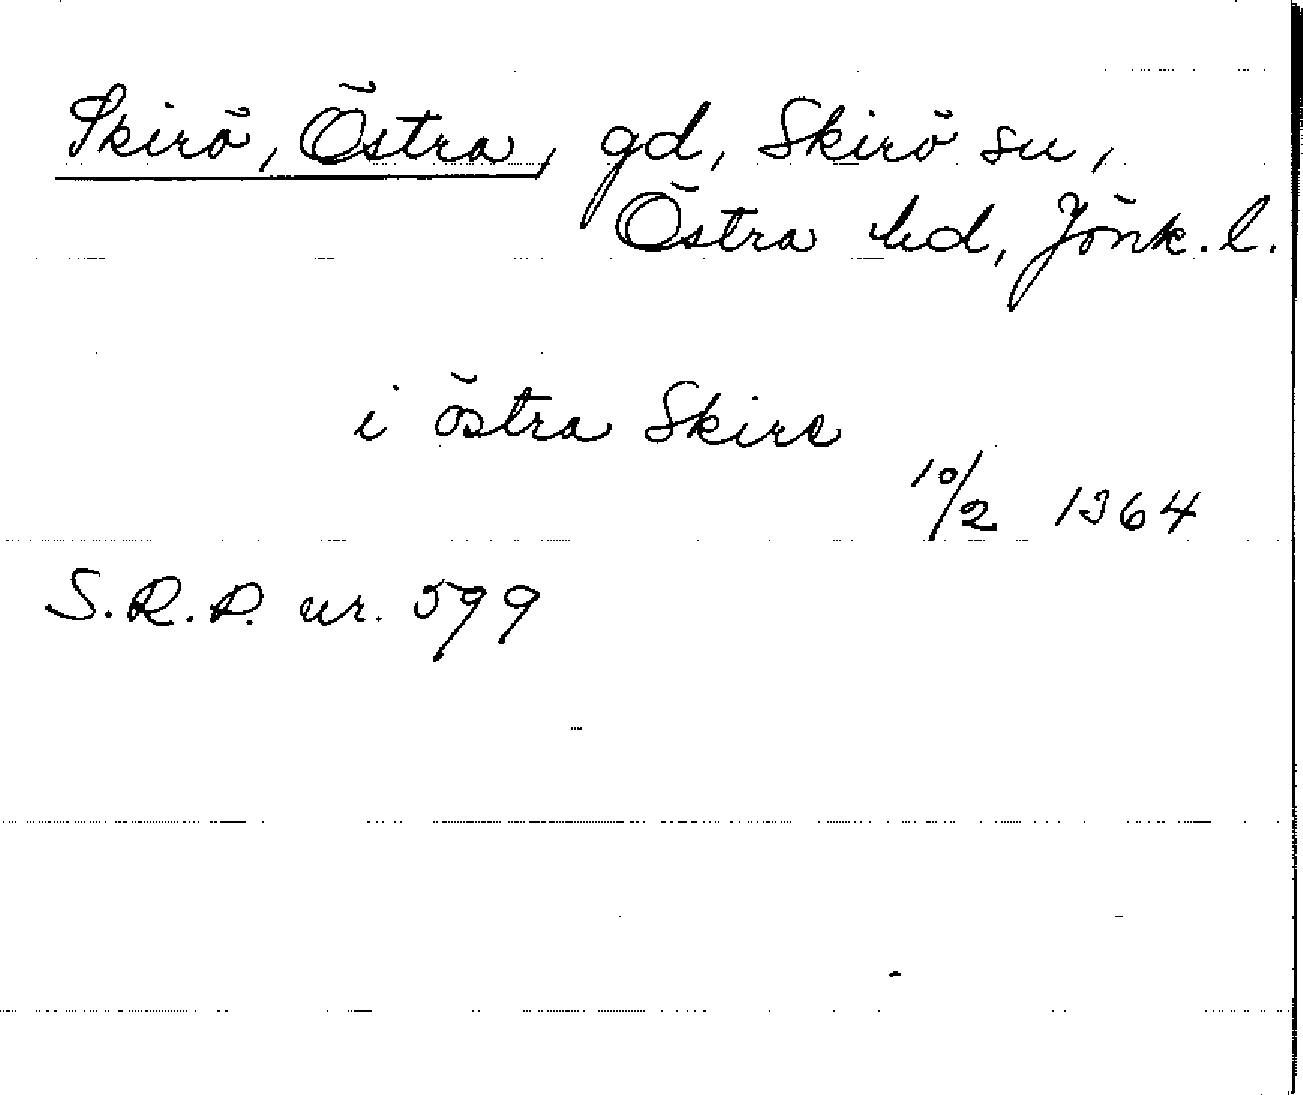 Skirö, Östra, gd, Skirö sn,
Östra hd, Jönk. l.
i östra Skire
10/2 1364
S.R.P. nr. 599